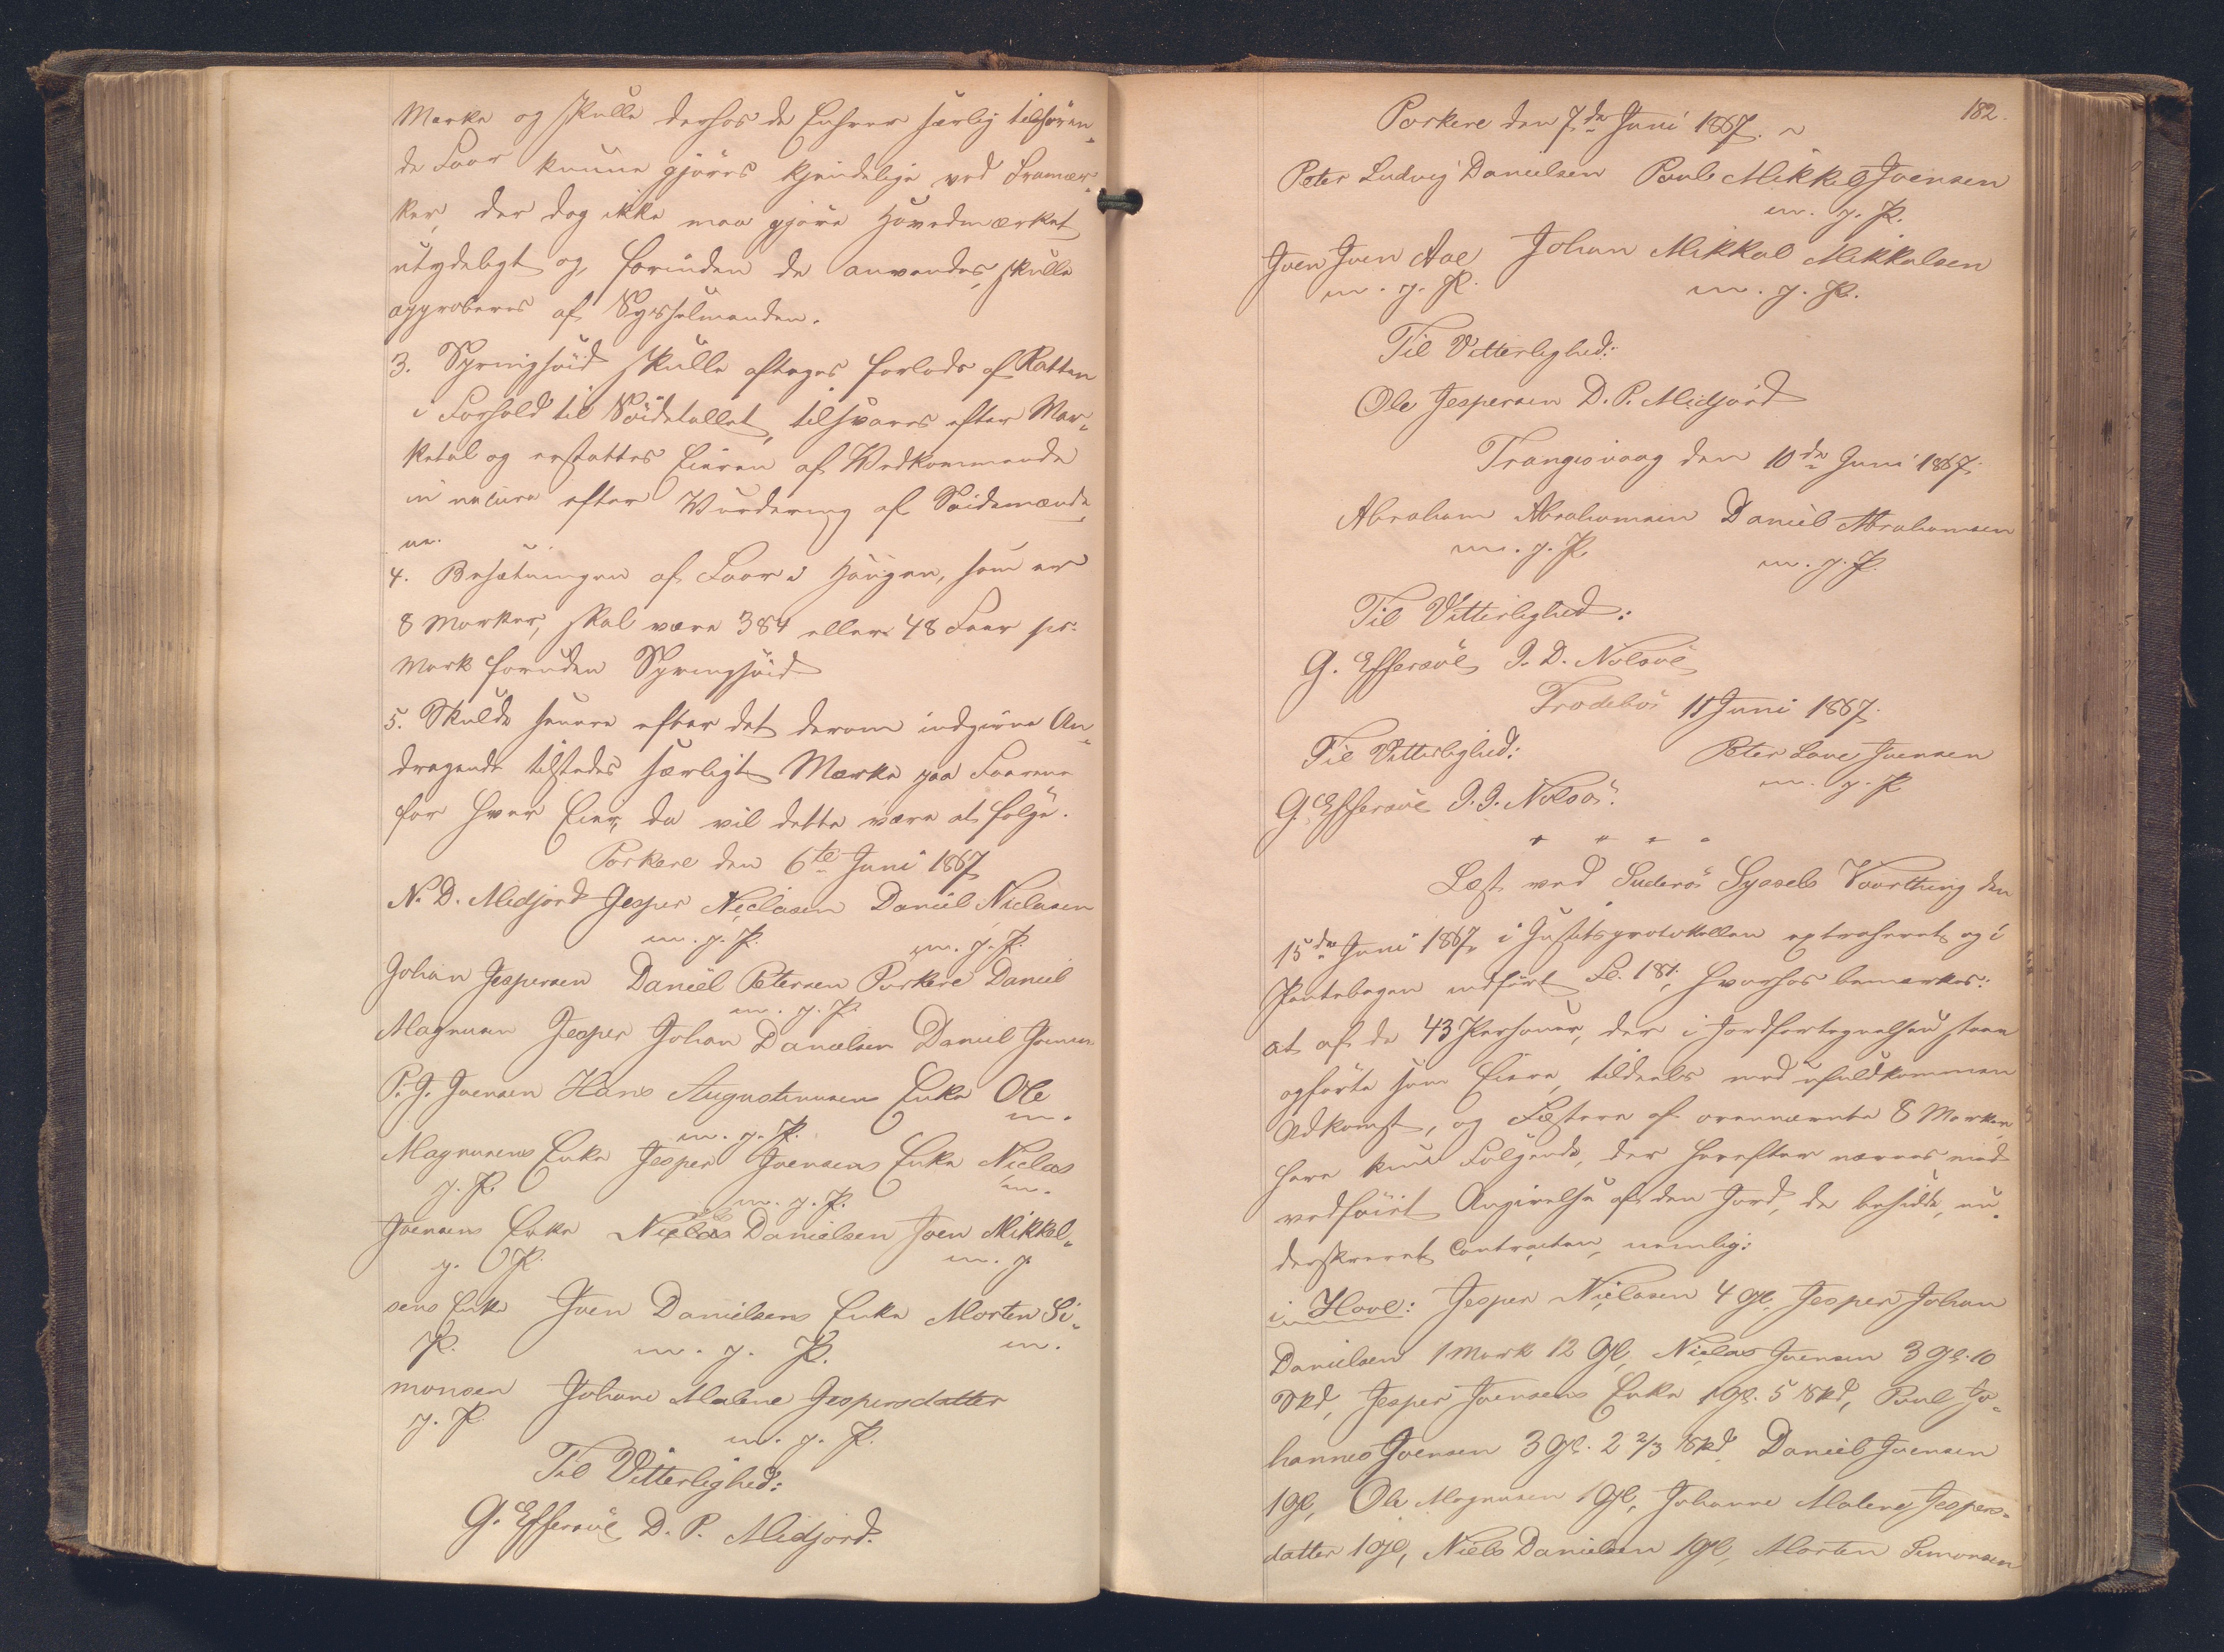 Mærke og skulle derhos de Enhver særlig tilhøren-
de Faar kunne gjøres kjendelige ved Framær-
ker, der dog ikke maa gjøre Hovedmærket
utydeligt og, forinden de anvendes, skulle
approberes af Sysselmanden.
3. Springhøid skulle aftages forlods af Ratten
i Forhold til Nöidetallet, tilsvares efter Mar-
ketal og erstattes Eieren af Vedkommende
in natura efter Vurdering af Söidemænde-
ne.
4. Besætningen af Faar i Haugen, som er
8 Marker, skal være 384 eller 48 Faar pr.
Mark foruden Springhøid
5. Skulde senere efter det derom indgivne An-
dragende tilstedes særligt Mærke paa Faarene
for hver Eier, da vil dette være at følge.
Porkere den 6te Juni 1867
N. D. Midjord Jesper Niclasen Daniel Niclasen
m. f. P. m. f. P.
Johan Jespersen Daniel Petersen Porkere Daniel
m. f. P.
Magnusen Jesper Johan Danielsen Daniel Joensen
P. J. Joensen Hans Augustinusens Enke Ole
m. f. P. m.
Magnusens Enke Jesper Joensens Enke Niclas
f. P. m. f. P. m.
Joensens Enke Niclas Danielsen Joen Mikkel-
f. P. m. f.
sens Enke Joen Danielsens Enke Morten Si-
P. m. f. P. m.
monsen Johane Malene Jespersdatter
f. P. m. f. P.
Til Vitterlighed:
G. Effersøe D. P. Midjord.
182.
Porkere den 7de Juni 1867.
Peter Ludvig Danielsen Poul Mikkel Joensen
m. f. P.
Joen Joen Aae Johan Mikkal Mikkelsen
m. f. P. m. f. P.
Til Vitterlighed:
Ole Jespersen D. P. Midjord
Trangisvaag den 10de Juni 1867.
Abraham Abrahamsen Daniel Abrahamsen
m. f. P. m. f. P.
Til Vitterlighed:
G. Effersøe J. D. Nolsøe
Frodebö 11 Juni 1867.
Til Vitterlighed: Peter Lave Joensen
m. f. P
G. Effersøe J. J. Nolsøe.
Læst ved Suderø Syssels Vaarthing den
15de Juni 1867, i Justitsprotokollen extraheret og i
Pantebogen indført Fol. 181, hvorhos bemærkes:
at af de 43 Personer, der i Jordfortegnelsen staae
opførte som Eiere, tildeels med ufuldkommen
Adkomst, og Fæstere af ovennævnte 8 Marker
have kun Følgende, der herefter nævnes med
vedføiet Angivelse af den Jord, de besidde, un-
derskrevet Contracten, nemlig:
i Hove: Jesper Niclasen 4 Gl, Jesper Johan
Danielsen 1 Mark 12 Gl, Niclas Joensen 3 Gl. 10
Skd, Jesper Joensens Enke 1 Gl. 5 Skd, Poul Jo-
hannes Joensen 3 Gl. 2 2/3 Skd. Daniel Joensen
1 Gl, Ole Magnusen 1 Gl, Johanne Malene Jespers-
datter 1 Gl, Niels Danielsen 1 Gl, Morten Simonsen